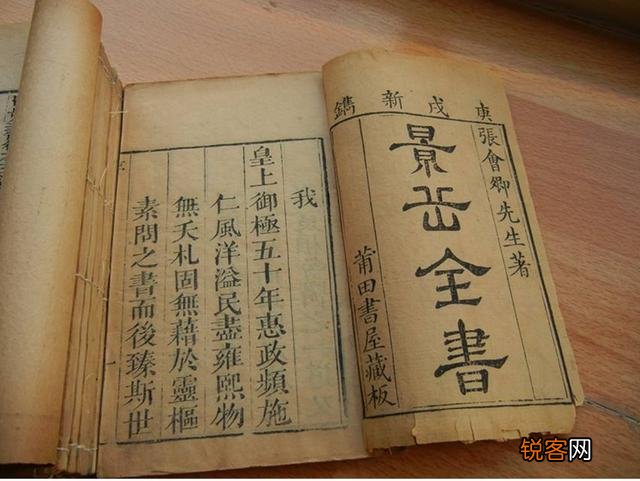 庚戌新鐫
張會卿先生著
景岳全書
莆田書屋藏板
我
皇上御極五十年惠政頻施
仁風洋溢民盡雍熙物
無夭札固無藉於靈樞
素問之書而後臻斯世
锐客网